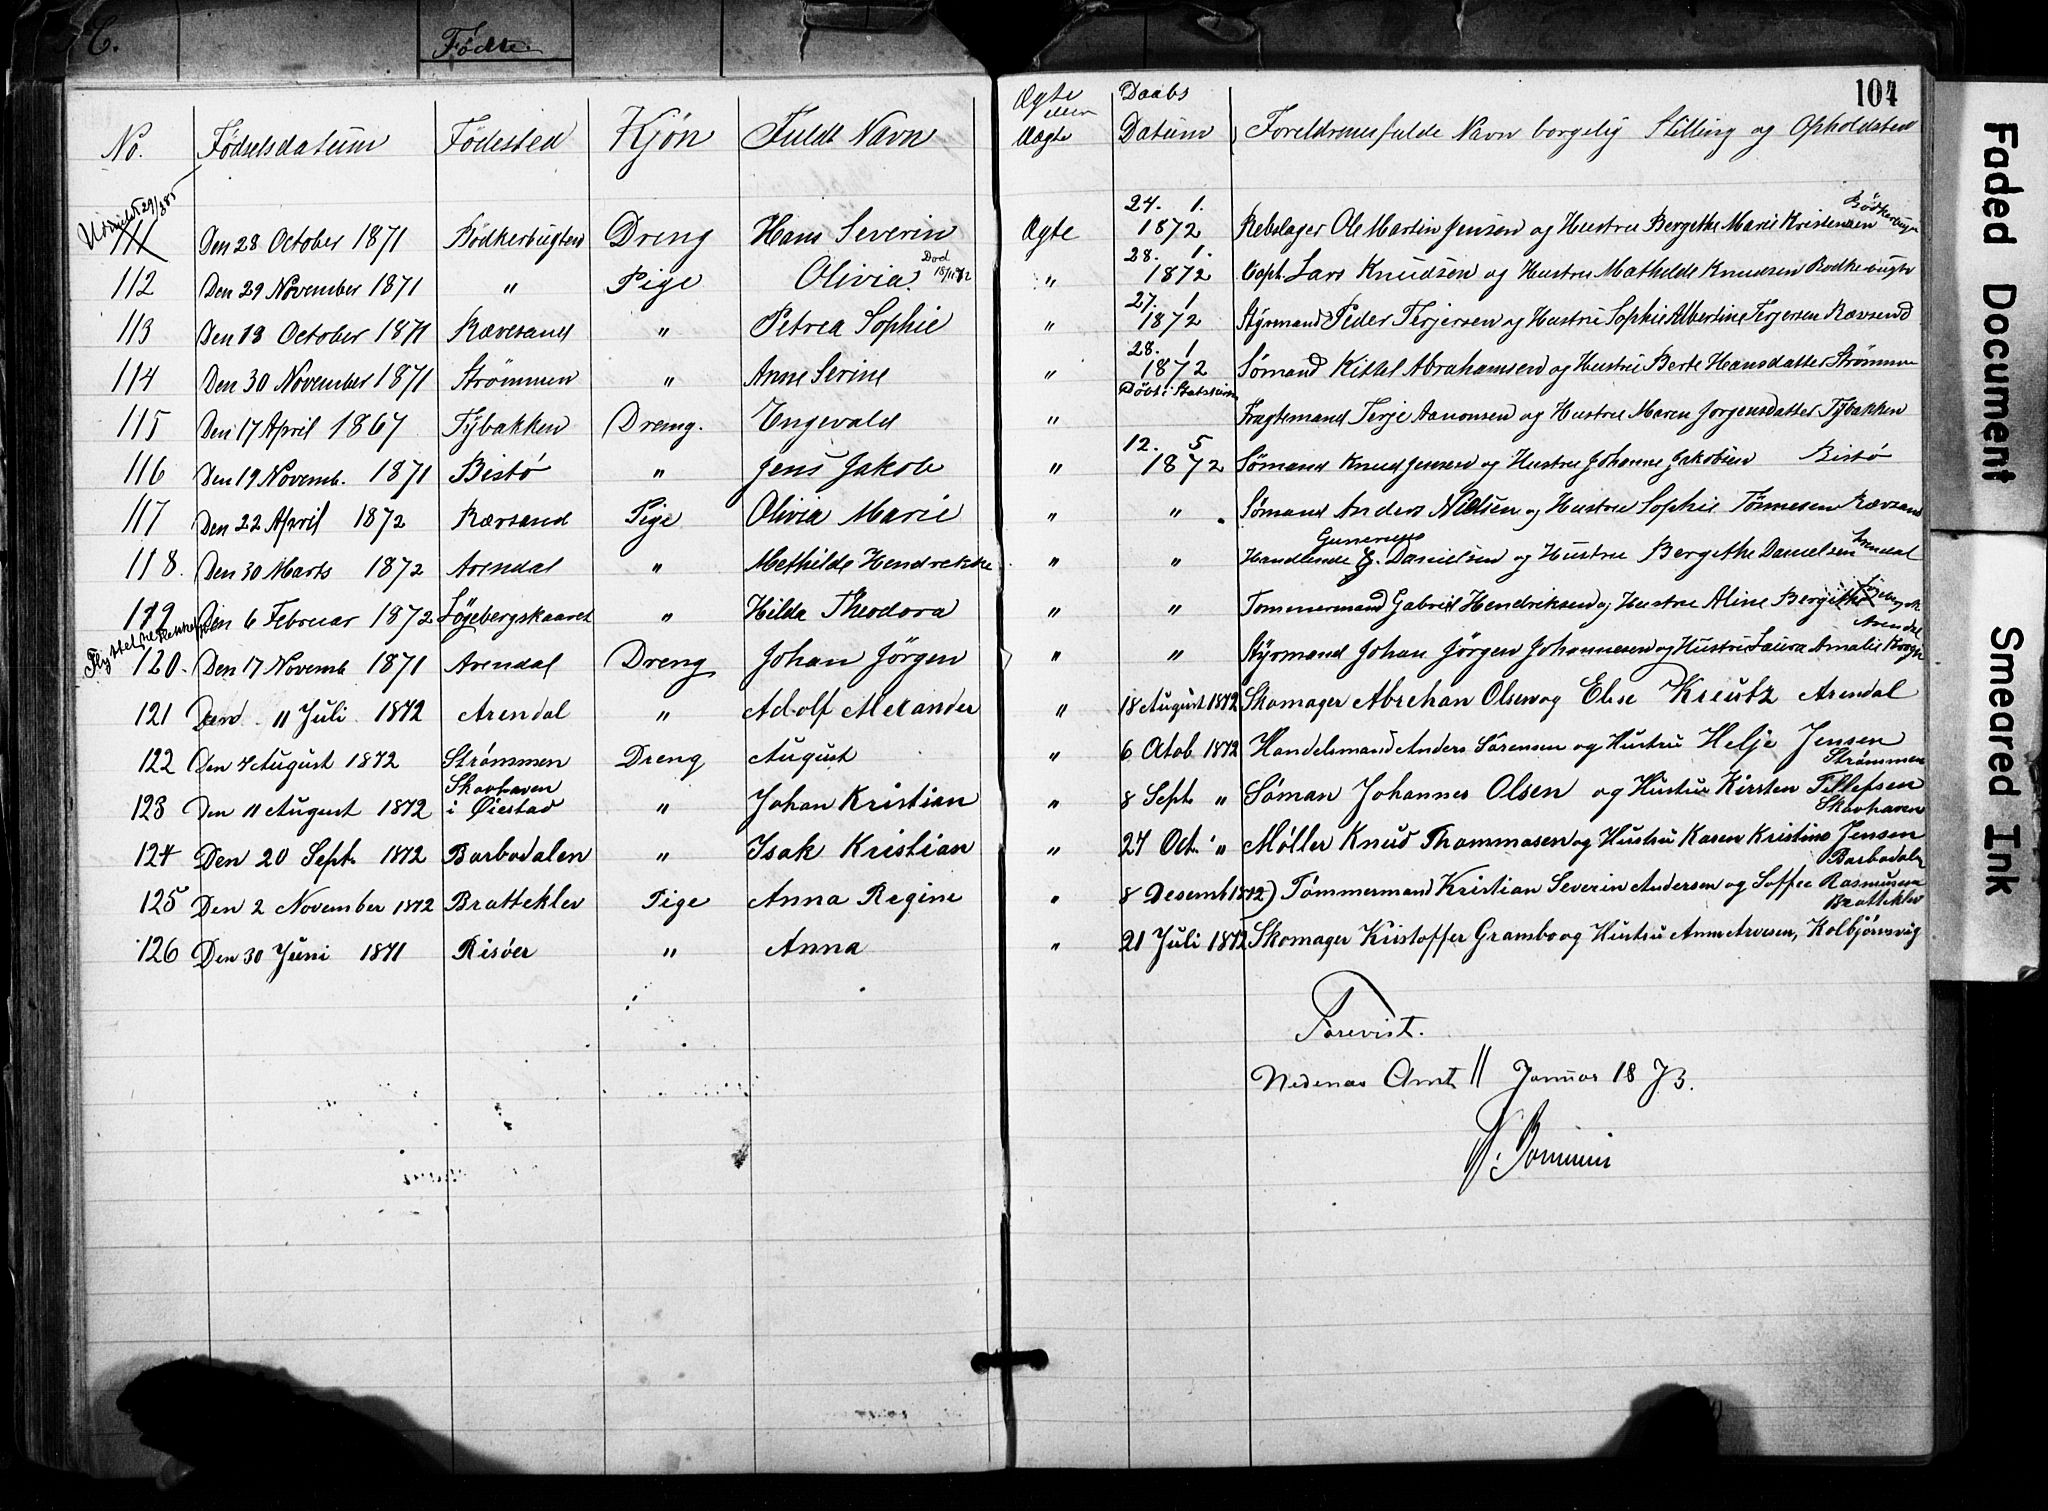 C. Fødte.
104
No. Fødselsdatum Fødested Kjøn Fuldt Navn Ægte eller Uægte Daabs Datum Foreldrenes fulde Navn borgelig Stilling og Opholdsted
111 Den 28 October 1871 Bödkerbugten Dreng Hans Severin Ægte 24. 1. 1872 Rebslager Ole Martin Jensen og Hustru Bergethe Marie Kristensen Bödkerbugn
112 Den 29 November 1871 " Pige Olivia. Död " 28. 1. 1872 Capt. Lars Knudsen og Hustru Mathilde Knudsen Bödkebugtn
113 Den 13 October 1871 Rævesand " Petrea Sophie " 27. 1 1872 Styrmand Peder Terjersen og Hustru Sophie Albertine Terjersen Rævsend
114 Den 30 November 1871 Strømmen " Anne Serine " 28. 1 1872 Sømand Kittel Abrahamsen og Hustru Berte Hansdatter Strømmen
115 Den 17 April 1867 Tybakken Dreng. Engevald " Döbt i Fragtemand Terje Aanonsen og Hustru Maren Jorgensdatter Tybakken
116 Den 19 Novemb. 1871 Bistö " Jens Jakob " 12. 5 1872 Sømand Knud Jensen og Hustru Johanne Jakobsen Bistø
117 Den 22 April 1872 Rævsand Pige Olivia Marie " " Sømand Anders Nielsen og Hustru Sophie Tönnesen Rævsand
118. Den 30 Marts 1872 Arendal " Methilde Hendrekke " " Handlende G. Danielsen og Hustru Bergethe Danielsen Arendal
119 Den 6 Februar 1872 Løgebergskaaret " Hilda Theodora " " Tommermand Gabriel Hendriksen og Hustru Aline Bergithe
Flyttet
120. Den 17 Novemb 1871 Arendal Dreng Johan Jörgen " " Styrmand Johan Jörgen Johannesen og Hustru Laura Amalie Arendal
121 Den " Juli 1872 Arendal " Adolf Alexander " 18 August 1872 Skomager Abrehan Olsen og Elise Kreutz Arendal
122 Den 4 August 1872 Strømmen Dreng August " 6 Octob 1872 Handelsmand Anders Sørensen og Hustru Helje Jensen Strømmen
123 Den 11 August 1872 Skovhaven i Øiestad " Johan Kristian " 8 Sept. " Söman Johannes Olsen og Hustru Kirsten Tellefsen Skovhaven
124 Den 20 Sept. 1872 Barbodalen " Isak Kristian " 27 Oct. " Møller Knud Thommasen og Hustru Karen Kristine Jensen Barbodaln
125 Den 2 November 1872 Bratteklev Pige Anna Regine " 8 Desemb 1872) Tömmermand Kristian Severin Andersen og Soffee Rasmusen Bratteklev
126 Den 30 Juni 1871 Risöer " Anna " 21 Juli 1872 Skomager Kristoffer Gransbo og Hustru Anne Arvesen, Kolbjörnsvig
Forevist.
Nedenæs Amt 11 Januar 1873.
Faded Document
Smeared Ink